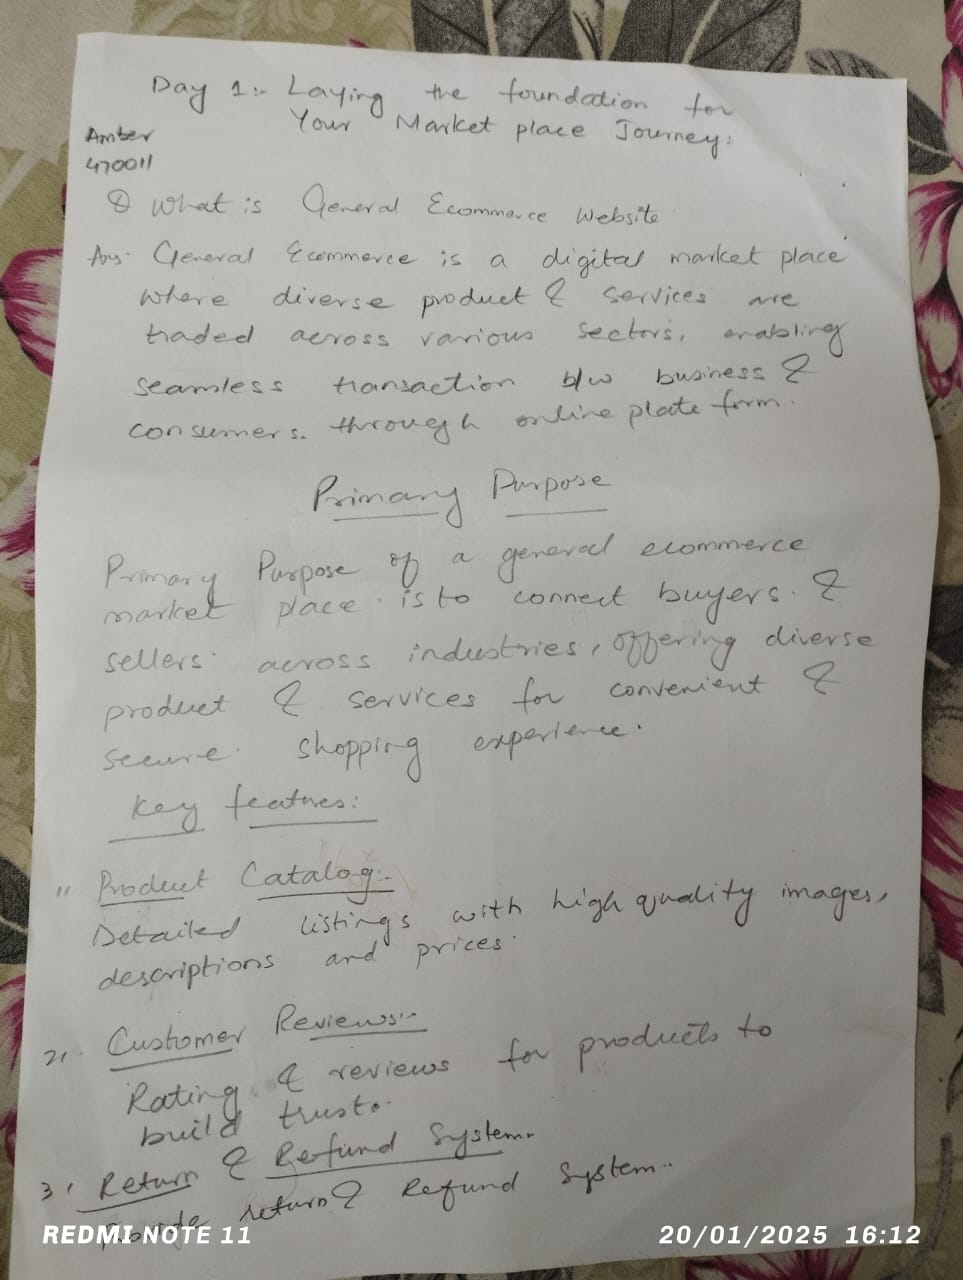 Day 1:- Laying the foundation for
Your Market place Journey:
Amber
470011
Q What is General Ecommerce Website
Ans. General Ecommerce is a digital market place
where diverse product & services are
traded across various sectors, enabling
seamless transaction b/w business &
consumers. through online plateform.
Primary Purpose
Primary Purpose of a general ecommerce
market place. is to connect buyers. &
sellers. across industries, offering diverse
product & services for convenient &
secure. shopping experience.
Key features:
1, Product Catalog:-
Detailed listings with high quality images,
descriptions and prices.
2, Customer Reviews:-
Rating & reviews for products to
build trust.
3, Return & Refund System..
Provide return & Refund System..
REDMI NOTE 11
20/01/2025 16:12